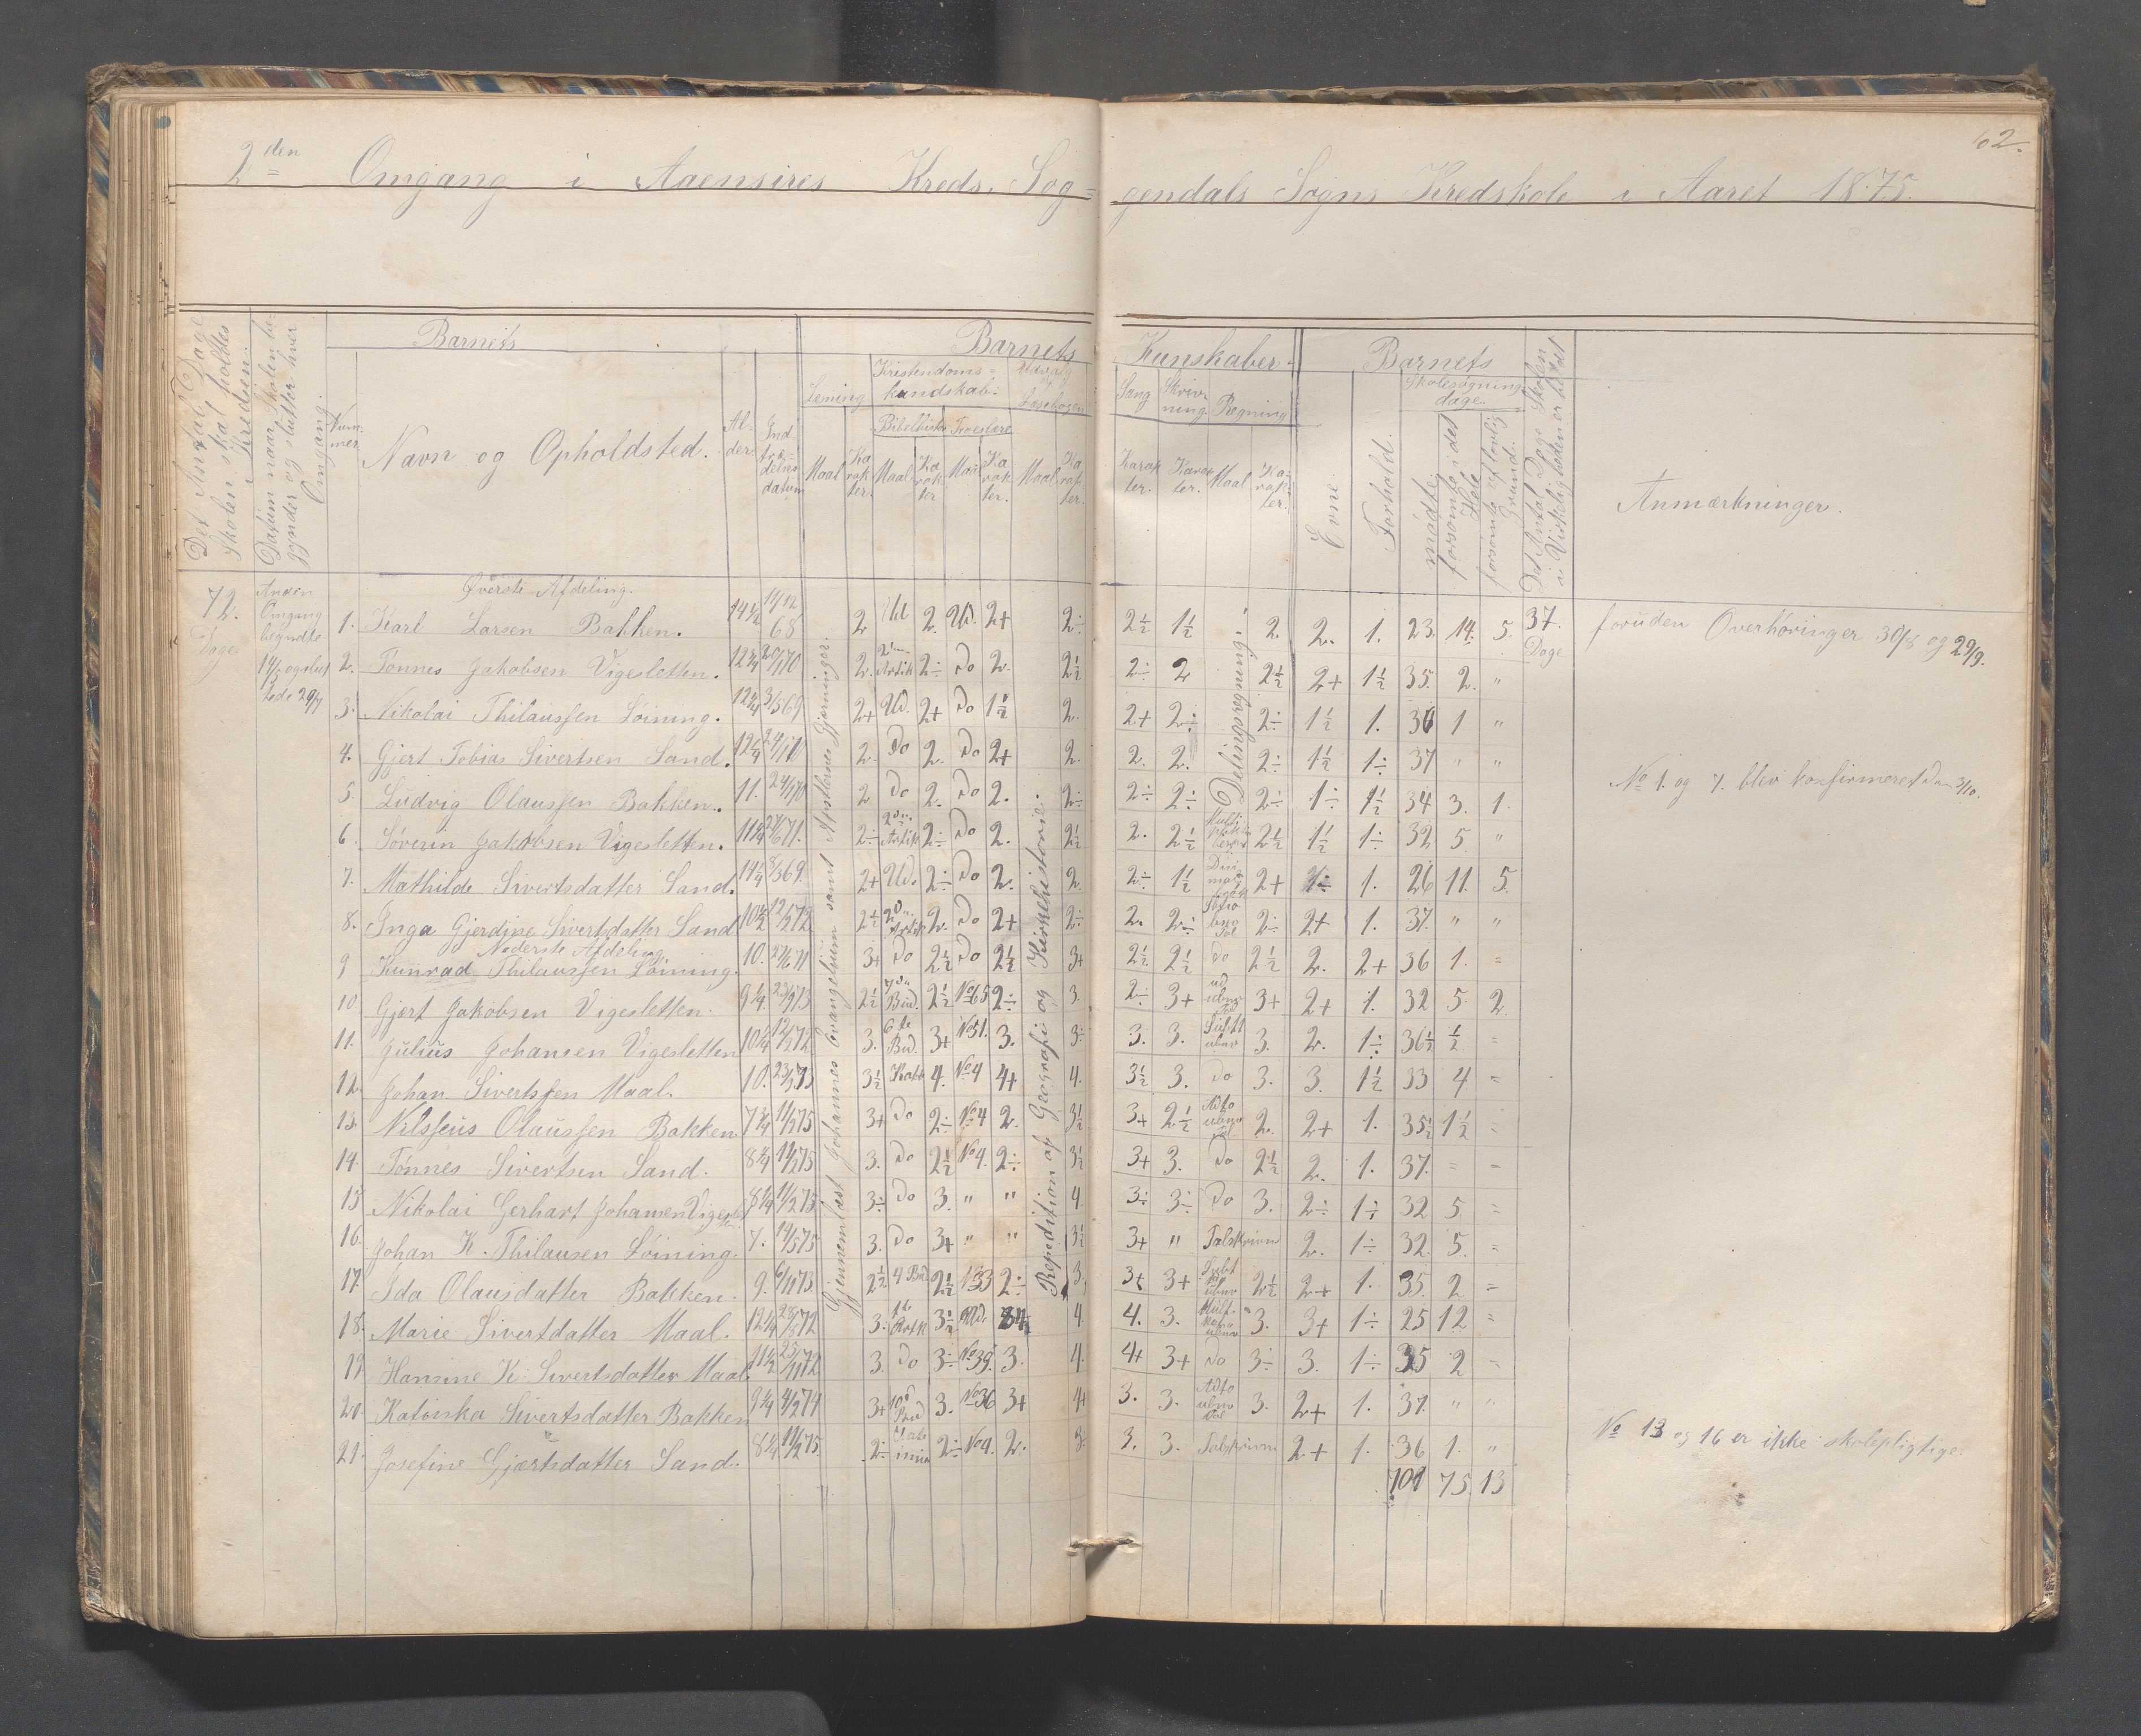 62.
2den Omgang i Aaensires Kreds, Sog=
gendals Sogns Kredskole i Aaret 1875.
Det Antal Dage Skolen skal holdes i Kredsen.
Datum naar Skolen begynder og slutter hver Omgang.
Barnets
Barnets Kunskaber.
Barnets
Nummer
Navn og Opholdsted.
Alder
Indtrædelsesdatum
Læsning
Kristendomskundskab.
Bibelhistorie Troeslære
Udvalg af Læsebogen
Maal Karakter. Maal Karakter Maal Karakter. Maal Karakter.
Sang Skrivning. Regning
Karakter. Karakter. Maal Karakter.
Evne.
Forhold.
Skolesøgning dage.
mødte
forsømte i det Hele
forsømte af lovlig Grund.
Det Antal Dage Skolen i Virkeligheden er holdt
Anmærkninger.
72. Dage
Anden Omgang begyndte 14/5 og sluttede 29/7
Øverste Afdeling.
Gjennemlæst Johannes Evangelium samt Apostlernes Gjerninger.
Repedition af Geografi og Kirkehistorie.
Delingsregning.
1. Karl Larsen Bakken. 14 1/2 14/12 68 2 Ud 2. Ud. 2+ 2÷ 2 1/2 1 1/2 2. 2. 1. 23. 14. 5. 37. Dage
foruden Overhøringer 30/8 og 29/9.
2. Tønnes Jakobsen Vigesletten. 12 3/4 20/1 70 2. Artik 2÷ Do 2. 2 1/2 2÷ 2 2 1/2 2+ 1 1/2 35. 2. "
3. Nikolai Thilaussen Løining. 12 3/4 3/5 69 2+ Ud. 2+ Do 1 1/2 2. 2+ 2÷ 2÷ 1 1/2 1. 36 1 "
4. Gjert Tobias Sivertsen Sand. 24/1 70 2. Do 2. Do 2+ 2. 2. 2. 2÷ 1 1/2 1÷ 37 " "
5. Ludvig Olaussen Bakken. 11. 24/1 70 2 Do 2. Do 2. 2÷ 2÷ 2÷ 2÷ 1÷ 1 1/2 34 3. 1.
No 1. og 7. blev konfirmeret den 3/10.
6 Søverin Jakobsen Vigesletten. 11 1/4 27/6 71. 2÷ Artik 2÷ Do 2. 2 1/2 2. 2 1/2 2 1/2 1 1/2 1÷ 32 5 "
7. Mathilde Sivertsdatter Sand. 14 1/4 8/3 69 2+ Ud. 2÷ Do 2. 2 2÷ 1 1/2 2+ 1. 26 11. 5.
8. Inga Gjerdine Sivertsdatter Sand 10 1/2 12/2 72 2 1/2 Artik 2. Do 2+ 2÷ 2. 2÷ 2÷ 2+ 1. 37. " "
Nederste Afdeling
9 Kunrad Thilaussen Løining. 10. 27/6 71 3+ Do 2 1/2 Do 2 1/2 3+ 2 1/2 2 1/2 do 2 1/2 2. 2+ 36 1. =
10 Gjert Jakobsen Vigesletten. 9 1/4 23/9 73 2 1/2 Bud. 2 1/2 No 65 2÷ 3. 2÷ 3+ 3+ 2+ 1. 32 5 2.
11. Julius Johansen Vigesletten 10 1/4 12/2 72 3. 6te Bud. 3+ No 51. 3. 3÷ 3. 3. 3. 2. 1÷ 36 1/2 1/2 =
12 Johan Sivertssen Maal. 10. 23/9 73 3 1/2 4. No 4 4+ 4. 3 1/2 3. Do 3. 3. 1 1/2 33 4 "
13. Nilsseus Olaussen Bakken 7 3/4 11/2 75 3+ Do 2÷ No 4 2. 3 1/2 3+ 2 1/2 2. 2+ 1. 35 1/2 1 1/2
14. Tønnes Sivertsen Sand. 8 3/4 11/2 75 3. Do 2 1/2 No 4. 2÷ 3 1/2 3+ 3. Do 2 1/2 2. 1. 37. = =
15 Nikolai Gerhart Johansen Vigeslet 8 1/4 11/2 75 3÷ Do 3. " " 4. 3÷ 3÷ Do 3. 2÷ 1÷ 32 5 =
16. Johan K. Thilausen Løining. 7. 14/5 75 3. Do 3+ " " 3 1/2 3+ " Talskrivn 2. 1÷ 32. 5. =
17. Ida Olausdatter Bakken. 9. 6/11 73. 2 1/2 4 Bud. 2 1/2 33 2÷ 3. 3+ 3+ 2 1/2 2+ 1. 35. 2 =
18. Marie Sivertdatter Maal. 12 1/4 28/8 72 3. Artk 3 1/2 Ud. 4. 4. 3. 3. 3+ 1÷ 25 12 =
19. Hansine K. Sivertsdatter Maal 11 1/2 25/11 72 3. Do 3÷ No 39. 3. 4. 4+ 3+ Do 3÷ 3. 1÷ 35 2 =
20. Katinka Sivertsdatter Bakken 9 1/4 4/2 74 3+ Bud 3. No 36 3+ 4+ 3. 3. 3. 2+ 1. 37. " "
No 13 og 16 er ikke skolepligtige.
21. Josefine Gjærtsdatter Sand. 8 1/4 11/2 75. 2÷ 2÷ No 4. 2. 3. 3. 3. Talskrivn 2+ 1. 36 1. "
701 75. 13